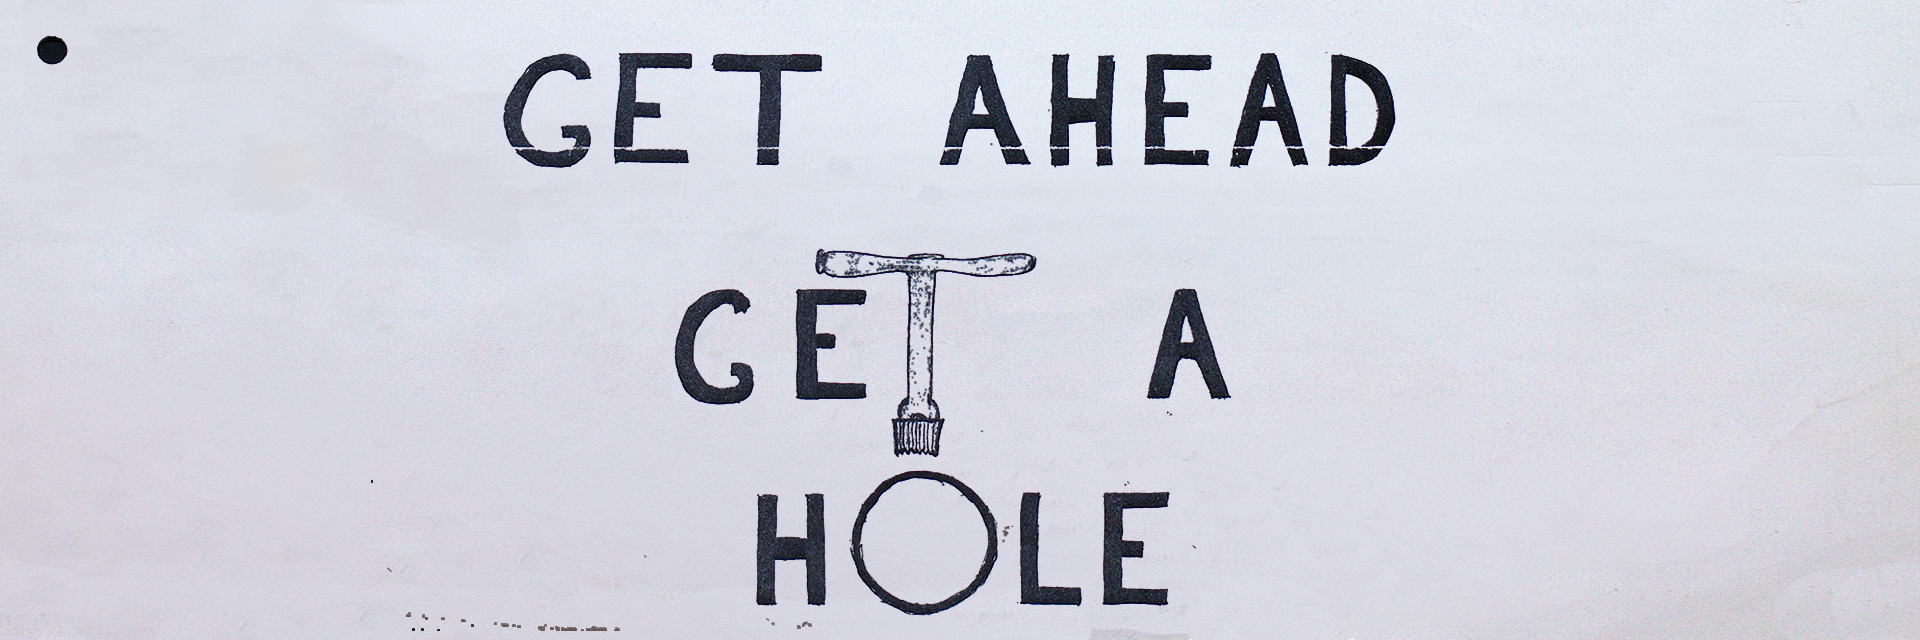 GET AHEAD
GET A
HOLE